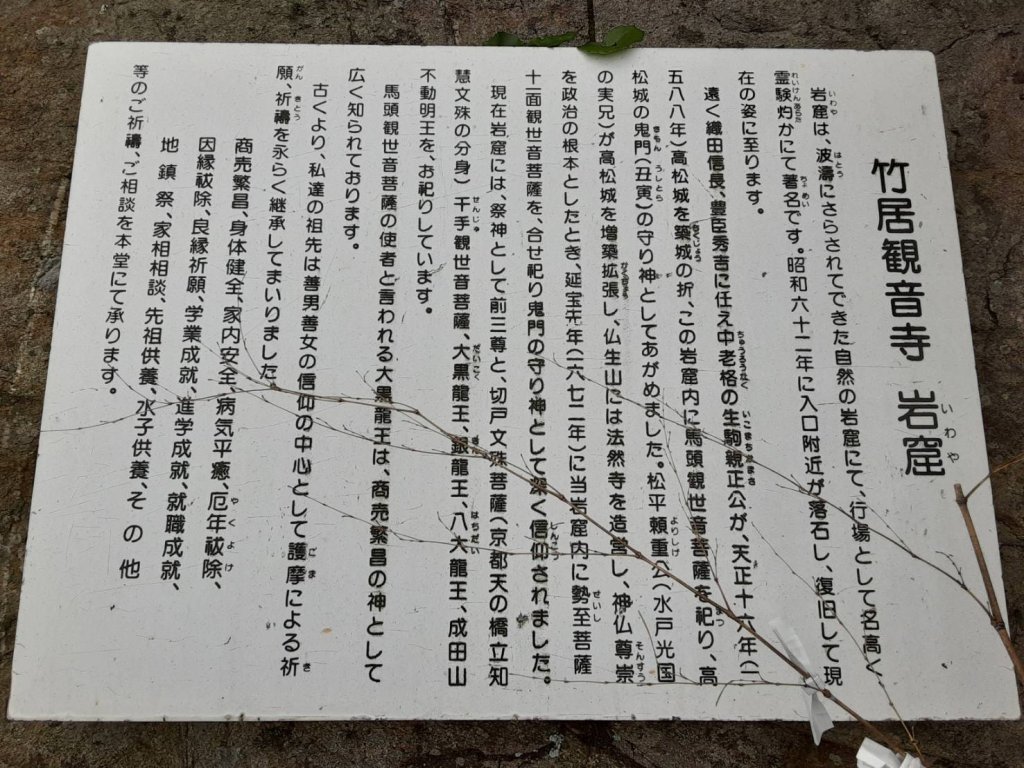 竹居観音寺 岩窟
岩窟は、波濤にさらされてできた自然の岩窟にて、行場として名高く
霊験灼かにて著名です。昭和六十二年に入口附近が落石し、復旧して現
在の姿に至ります。
遠く織田信長、豊臣秀吉に任え中老格の生駒親正公が、天正十六年(一
五八八年)高松城を築城の折、この岩窟内に馬頭観世音菩薩を祀り、高
松城の鬼門(丑寅)の守り神としてあがめました。松平頼重公(水戸光国
の実兄)が高松城を増築拡張し、仏生山には法然寺を造営し、神仏尊崇
を政治の根本としたとき、延宝元年(一六七二年)に当岩窟内に勢至菩薩
十一面観世音菩薩を、合せ祀り鬼門の守り神として深く信仰されました。
現在岩窟には、祭神として前三尊と、切戸文殊菩薩(京都天の橋立知
慧文殊の分身)千手観世音菩薩、大黒龍王、銀龍王、八大龍王、成田山
不動明王を、お祀りしています。
馬頭観世音菩薩の使者と言われる大黒龍王は、商売繁昌の神として
広く知られております。
古くより、私達の祖先は善男善女の信仰の中心として護摩による祈
願、祈禱を永らく継承してまいりました。
商売繁昌、身体健全、家内安全、病気平癒、厄年祓除、
因縁祓除、良縁祈願、学業成就、進学成就、就職成就、
地鎮祭、家相相談、先祖供養、水子供養、その他
等のご祈禱、ご相談を本堂にて承ります。